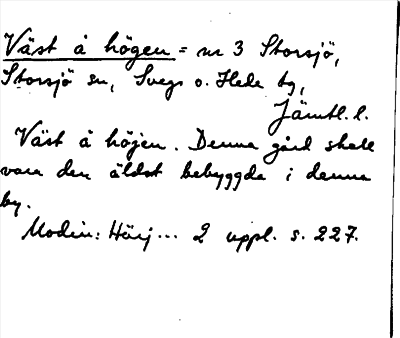 Väst å högen = nr 3 Storsjö,
Storsjö sn, Svegs o. Hede tg,
Jämtl. l.
Väst å höjen. Denna gård skall
vara den äldst bebyggda i denna
by.
Modin: Härj... 2 uppl. s. 227.